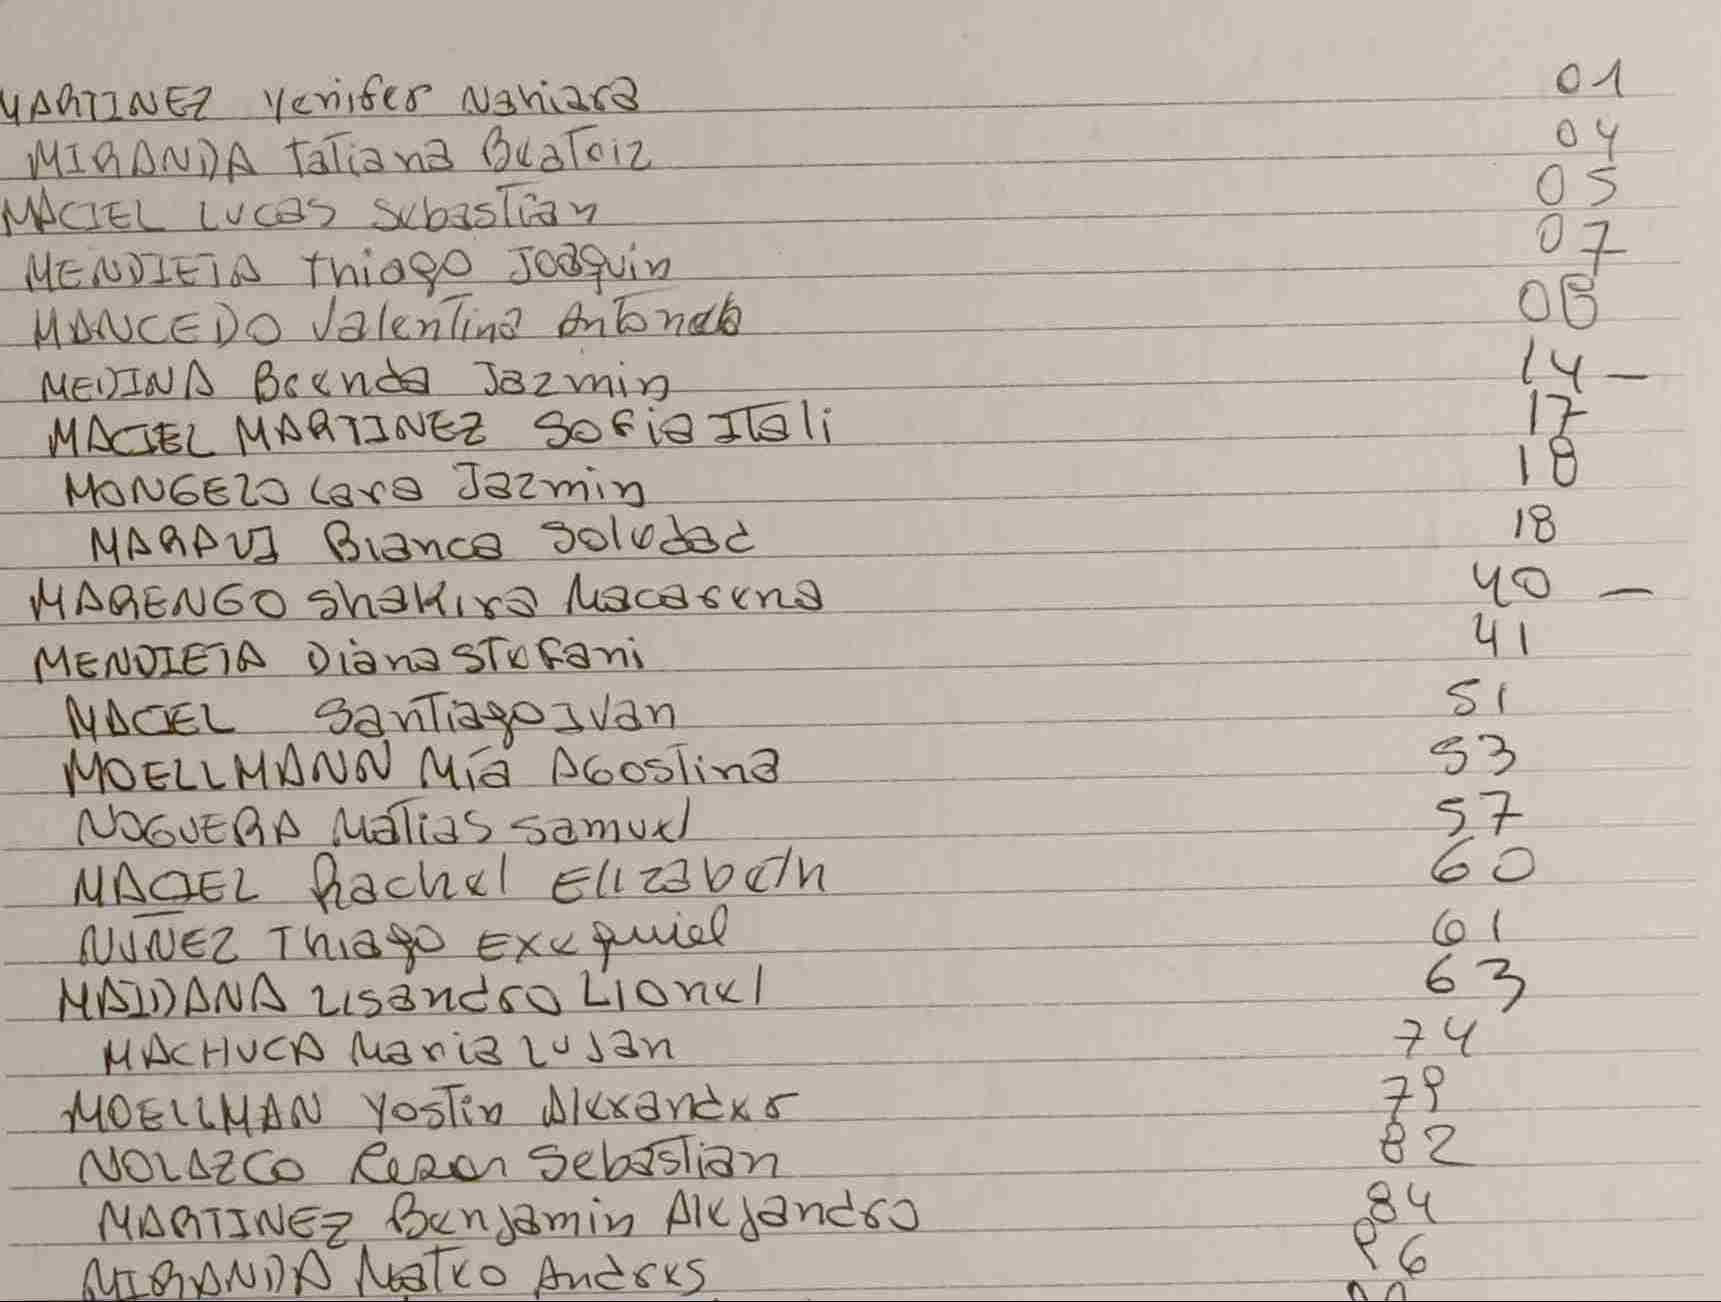 MARTINEZ Yenifer Nahiara 01
MIRANDA Tatiana Beatriz 04
MACIEL Lucas Sebastian 05
MENDIETA Thiago Joaquin 07
MANCEDO Valentina Antonela 08
MEDINA Brenda Jazmin 14 –
MACIEL MARTINEZ Sofia Itali 17
MONGELO Lara Jazmin 18
MARAVI Bianca Soledad 18
MARENGO Shakira Macarena 40 –
MENDIETA Diana Stefani 41
MACIEL Santiago Ivan 51
MOELLMANN Mía Agostina 53
NOGUERA Matias Samuel 57
MACIEL Rachel Elizabeth 60
NUÑEZ Thiago Exequiel 61
MAIDANA Lisandro Lionel 63
MACHUCA Maria Lujan 74
MOELLMAN Yostin Alexander 79
NOLAZCO Sebastian 82
MARTINEZ Benjamin Alejandro 84
MIRANDA Mateo Andres 86